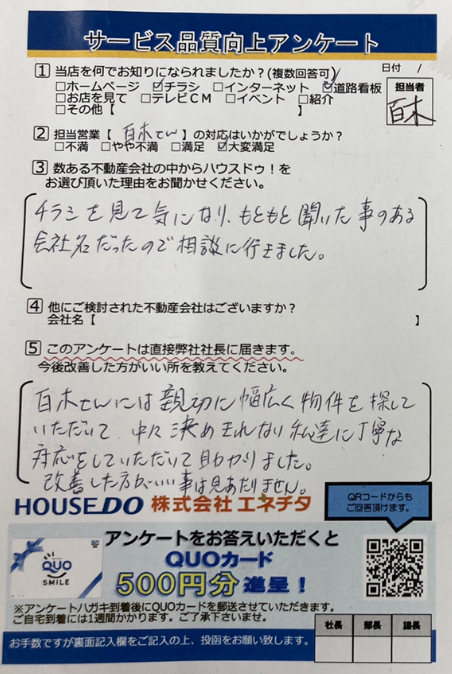 サービス品質向上アンケート
1 当店を何でお知りになられましたか?(複数回答可)
日付 /
□ホームページ ☑チラシ □インターネット ☑道路看板
□お店を見て □テレビCM □イベント □紹介
□その他【 】
担当者
百木
2 担当営業【 百木さん 】の対応はいかがでしょうか?
□不満 □やや不満 □満足 ☑大変満足
3 数ある不動産会社の中からハウスドゥ!を
お選び頂いた理由をお聞かせください。
チラシを見て気になり、もともと聞いた事のある
会社名だったので相談に行きました。
4 他にご検討された不動産会社はございますか?
会社名【 】
5 このアンケートは直接弊社社長に届きます。
今後改善した方がいい所を教えてください。
百木さんには親切に幅広く物件を探して
いただいて、中々決めきれない私達に丁寧な
対応をしていただいて助かりました。
改善した方がいい事は見あたりません。
HOUSEDO 株式会社 エネチタ
QRコードからも
ご回答頂けます。
QUO
SMILE
アンケートをお答えいただくと
QUOカード
500円分 進呈!
※アンケートハガキ到着後にQUOカードを郵送させていただきます。
ご自宅到着には1週間かかります。ご了承下さいませ。
お手数ですが裏面記入欄をご記入の上、投函をお願い致します。
社長 部長 課長